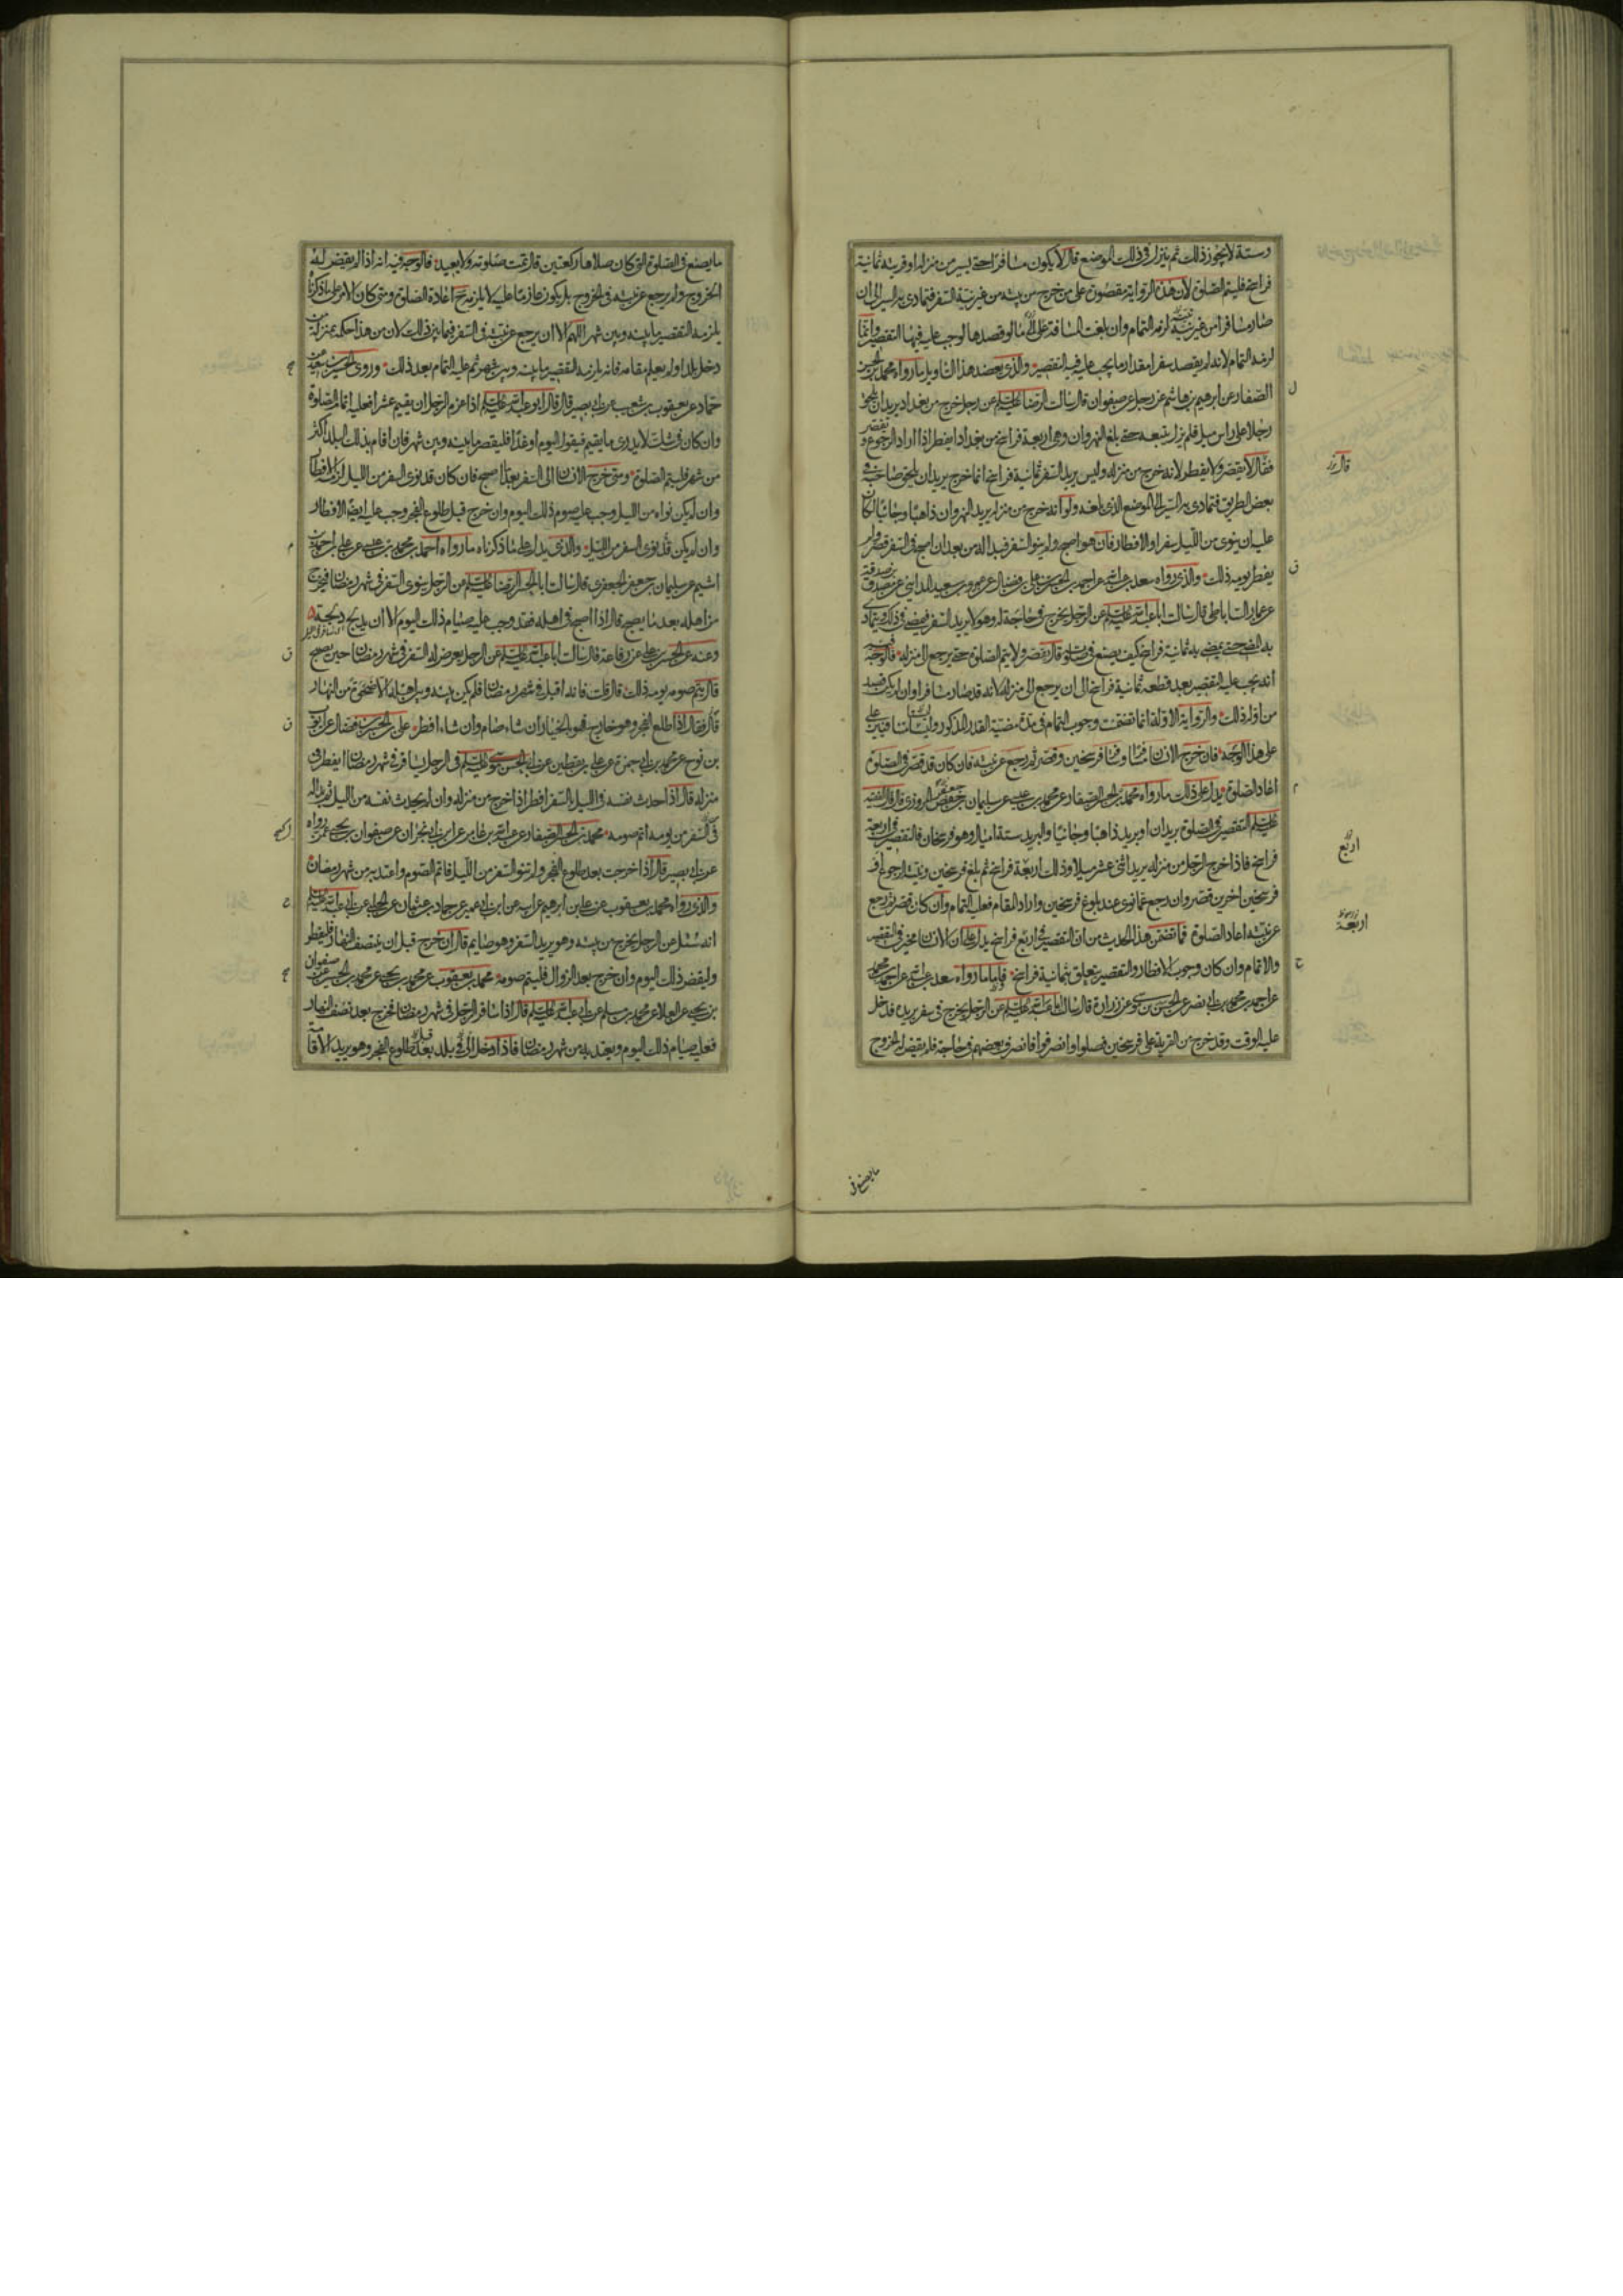 وستة لا يجوز ذلك ثم ينزل في ذلك الموضع قال لا يكون مسافرا حتى يسير من منزله او قريته ثمانية
فراسخ فليتم الصلوة لان هذه الرواية مقصورة على من خرج من بيته من غير نية السفر فتمادى به السير الى ان
صار مسافرا من غير نية لزمه التمام وان بلغت المسافة على ما لو قصدها لوجب عليه فيها التقصير وانما
لزمه التمام لانه لم يقصد سفرا مقدار ما يجب عليه فيه التقصير والذي يعضد هذا التاويل ما رواه محمد بن الحسن
الصفار عن ابرهيم بن هاشم عن رجل عن صفوان قال سالت الرضا عليه السلم عن رجل خرج من بغداد يريد ان يلحق
رجلا على راس ميل فلم يزل يتبعه حتى بلغ النهروان وهي اربعة فراسخ من بغداد ايفطر اذا اراد الرجوع ويقصر
فقال لا يقصر ولا يفطر لانه خرج من منزله وليس يريد السفر ثمانية فراسخ انما خرج يريد ان يلحق صاحبه في
بعض الطريق فتمادى به السير الى الموضع الذي بلغه ولو انه خرج من منزله يريد النهروان ذاهبا وجائيا لكان
عليه ان ينوي من الليل سفرا والافطار فان هو اصبح ولم ينو السفر فبدا له من بعد ان اصبح في السفر قصر ولم
يفطر يومه ذلك والذي رواه سعد بن عبد الله عن احمد بن الحسن بن علي بن فضال عن عمرو بن سعيد المدايني عن مصدق بن صدقة
عن عمار الساباطي قال سالت ابا عبد الله عليه السلم عن الرجل يخرج في حاجة له وهو لا يريد السفر فيمضي في ذلك ويتمادى
به المضي حتى يمضي به ثمانية فراسخ كيف يصنع في صلوته قال يقصر ولا يتم الصلوة حتى يرجع الى منزله فالوجه
انه يجب عليه التقصير بعد قطعه ثمانية فراسخ الى ان يرجع الى منزله لانه قد صار مسافرا وان لم يكن قصد
من اوله ذلك والرواية الاولة انما تضمنت وجوب التمام في مدة مضيه القدر المذكور وليستا متنافيتين على
على هذا الوجه فان خرج الانسان مسافرا وسار فرسخين وقصر ثم رجع عن نيته فان كان قد قصر في الصلوة
اعاد الصلوة يدل على ذلك ما رواه محمد بن الحسن الصفار عن محمد بن عيسى عن سليمان بن حفص المروزي قال قال الفقيه
عليه السلم التقصير في الصلوة بريدان او بريد ذاهبا وجائيا والبريد ستة اميال وهو فرسخان فالتقصير في اربعة
فراسخ فاذا خرج الرجل من منزله يريد اثني عشر ميلا وذلك اربعة فراسخ ثم بلغ فرسخين ونيته الرجوع او
فرسخين اخرين قصر وان رجع عما نوى عند بلوغ فرسخين واراد المقام فعليه التمام وان كان قصر ثم رجع
عن نيته اعاد الصلوة فما تضمن هذا الحديث من ان التقصير في اربع فراسخ يدل على ان الانسان مخير في التقصير
والاتمام وان كان وجوب الافطار والتقصير يتعلق بثمانية فراسخ فاما ما رواه سعد بن عبد الله عن احمد بن محمد
عن احمد بن محمد بن ابي نصر عن الحسن بن موسى عن زرارة قال سالت ابا عبد الله عليه السلم عن الرجل يخرج في سفر يريده فدخل
عليه الوقت وقد خرج من القرية على فرسخين فصلوا وانصرفوا فانصرف بعضهم في حاجة فلم يقض له الخروج
قال
اربع
اربعة
ما يصنع في
ما يصنع في الصلوة التي كان صلاها ركعتين قال تمت صلوته ولا يعيد فالوجه فيه انه اذا لم يقض له
الخروج ولم يرجع عن نيته في الخروج بل يكون عازما عليه لا يلزمه ح اعادة الصلوة ومتى كان الامر على ما ذكرنا
يلزمه التقصير ما بينه وبين شهر اللهم الا ان يرجع عن نيته في السفر فيما بين ذلك لان من هذا حكمه بمنزلة من
دخل بلدا ولم يعلم مقامه فانه يلزمه التقصير ما بينه وبين شهر ثم عليه التمام بعد ذلك وروى الحسين بن سعيد عن
حماد عن يعقوب بن شعيب عن ابي بصير قال قال ابو عبد الله عليه السلم اذا عزم الرجل ان يقيم عشرا فعليه اتمام الصلوة
وان كان في شك لا يدري ما يقيم فيقول اليوم او غدا فليقصر ما بينه وبين شهر فان اقام بذلك البلد اكثر
من شهر فليتم الصلوة ومتى خرج الانسان الى السفر بعد ما اصبح فان كان قد نوى السفر من الليل لزمه الافطار
وان لم يكن نواه من الليل وجب عليه صوم ذلك اليوم وان خرج قبل طلوع الفجر وجب عليه ايضا الافطار
وان لم يكن قد نوى السفر من الليل والذي يدل على ما ذكرناه ما رواه احمد بن محمد بن عيسى عن علي بن احمد بن
اشيم عن سليمان بن جعفر الجعفري قال سالت ابا الحسن الرضا عليه السلم عن الرجل ينوي السفر في شهر رمضان فيخرج
من اهله بعد ما يصبح قال اذا اصبح في اهله فقد وجب عليه صيام ذلك اليوم الا ان يدلج دلجة
وعنه عن الحسن بن علي عن رفاعة قال سالت ابا عبد الله عليه السلم عن الرجل يعرض له السفر في شهر رمضان حين يصبح
قال يتم صومه يومه ذلك قال قلت فانه اقبل في شهر رمضان فلم يكن بينه وبين اهله الا ضحوة من النهار
قال فقال اذا طلع الفجر وهو خارج فهو بالخيار ان شاء صام وان شاء افطر علي بن الحسن بن فضال عن ايوب
بن نوح عن محمد بن ابي حمزة عن علي بن يقطين عن ابي الحسن موسى عليه السلم في الرجل يسافر في شهر رمضان ايفطر في
منزله قال اذا حدث نفسه في الليل بالسفر افطر اذا خرج من منزله وان لم يحدث نفسه من الليل ثم بدا له
في السفر من يومه اتم صومه محمد بن الحسن الصفار عن عبد الله بن عامر عن ابن ابي نجران عن صفوان بن يحيى عمن رواه
عن ابي بصير قال اذا خرجت بعد طلوع الفجر ولم تنو السفر من الليل فاتم الصوم واعتد به من شهر رمضان
والذي رواه محمد بن يعقوب عن علي بن ابرهيم عن ابيه عن ابن ابي عمير عن حماد بن عثمان عن الحلبي عن ابي عبد الله عليه السلم
انه سئل عن الرجل يخرج من بيته وهو يريد السفر وهو صايم قال ان خرج قبل ان ينتصف النهار فليفطر
وليقض ذلك اليوم وان خرج بعد الزوال فليتم صومه محمد بن يعقوب عن محمد بن يحيى عن محمد بن الحسين عن صفوان
بن يحيى عن العلا عن محمد بن مسلم عن ابي عبد الله عليه السلم قال اذا سافر الرجل في شهر رمضان فخرج بعد نصف النهار
فعليه صيام ذلك اليوم ويعتد به من شهر رمضان فاذا دخل الى بلد بعد طلوع الفجر وهو يريد الاقامة